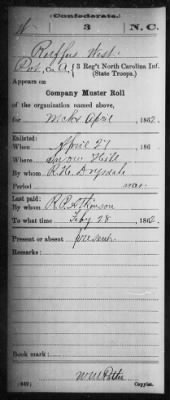 Confederate.
3 N.C.
Ruffus West
Pvt, Co. A, 3 Reg't North Carolina Inf.
(State Troops.)
Appears on
Company Muster Roll
of the organization named above,
for Mch & April 1862.
Enlisted:
When April 27 186
Where Snow Hill
By whom R. H. Drysdale
Period war
Last paid:
By whom R. P. Atkinson
To what time Feby 28 1862.
Present or absent present
Remarks:
Book mark:
(642) Copyist.